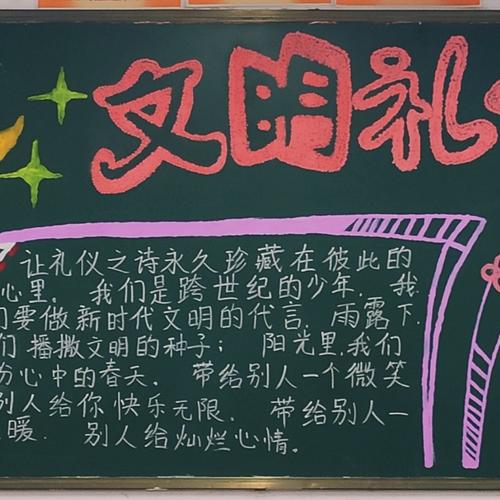 文明礼
让礼仪之诗永久珍藏在彼此的
心里. 我们是跨世纪的少年. 我
们要做新时代文明的代言, 雨露下.
们播撒文明的种子; 阳光里.我们
心中的春天. 带给别人一个微笑
别人给你快乐无限. 带给别人一
暖. 别人给灿烂心情.